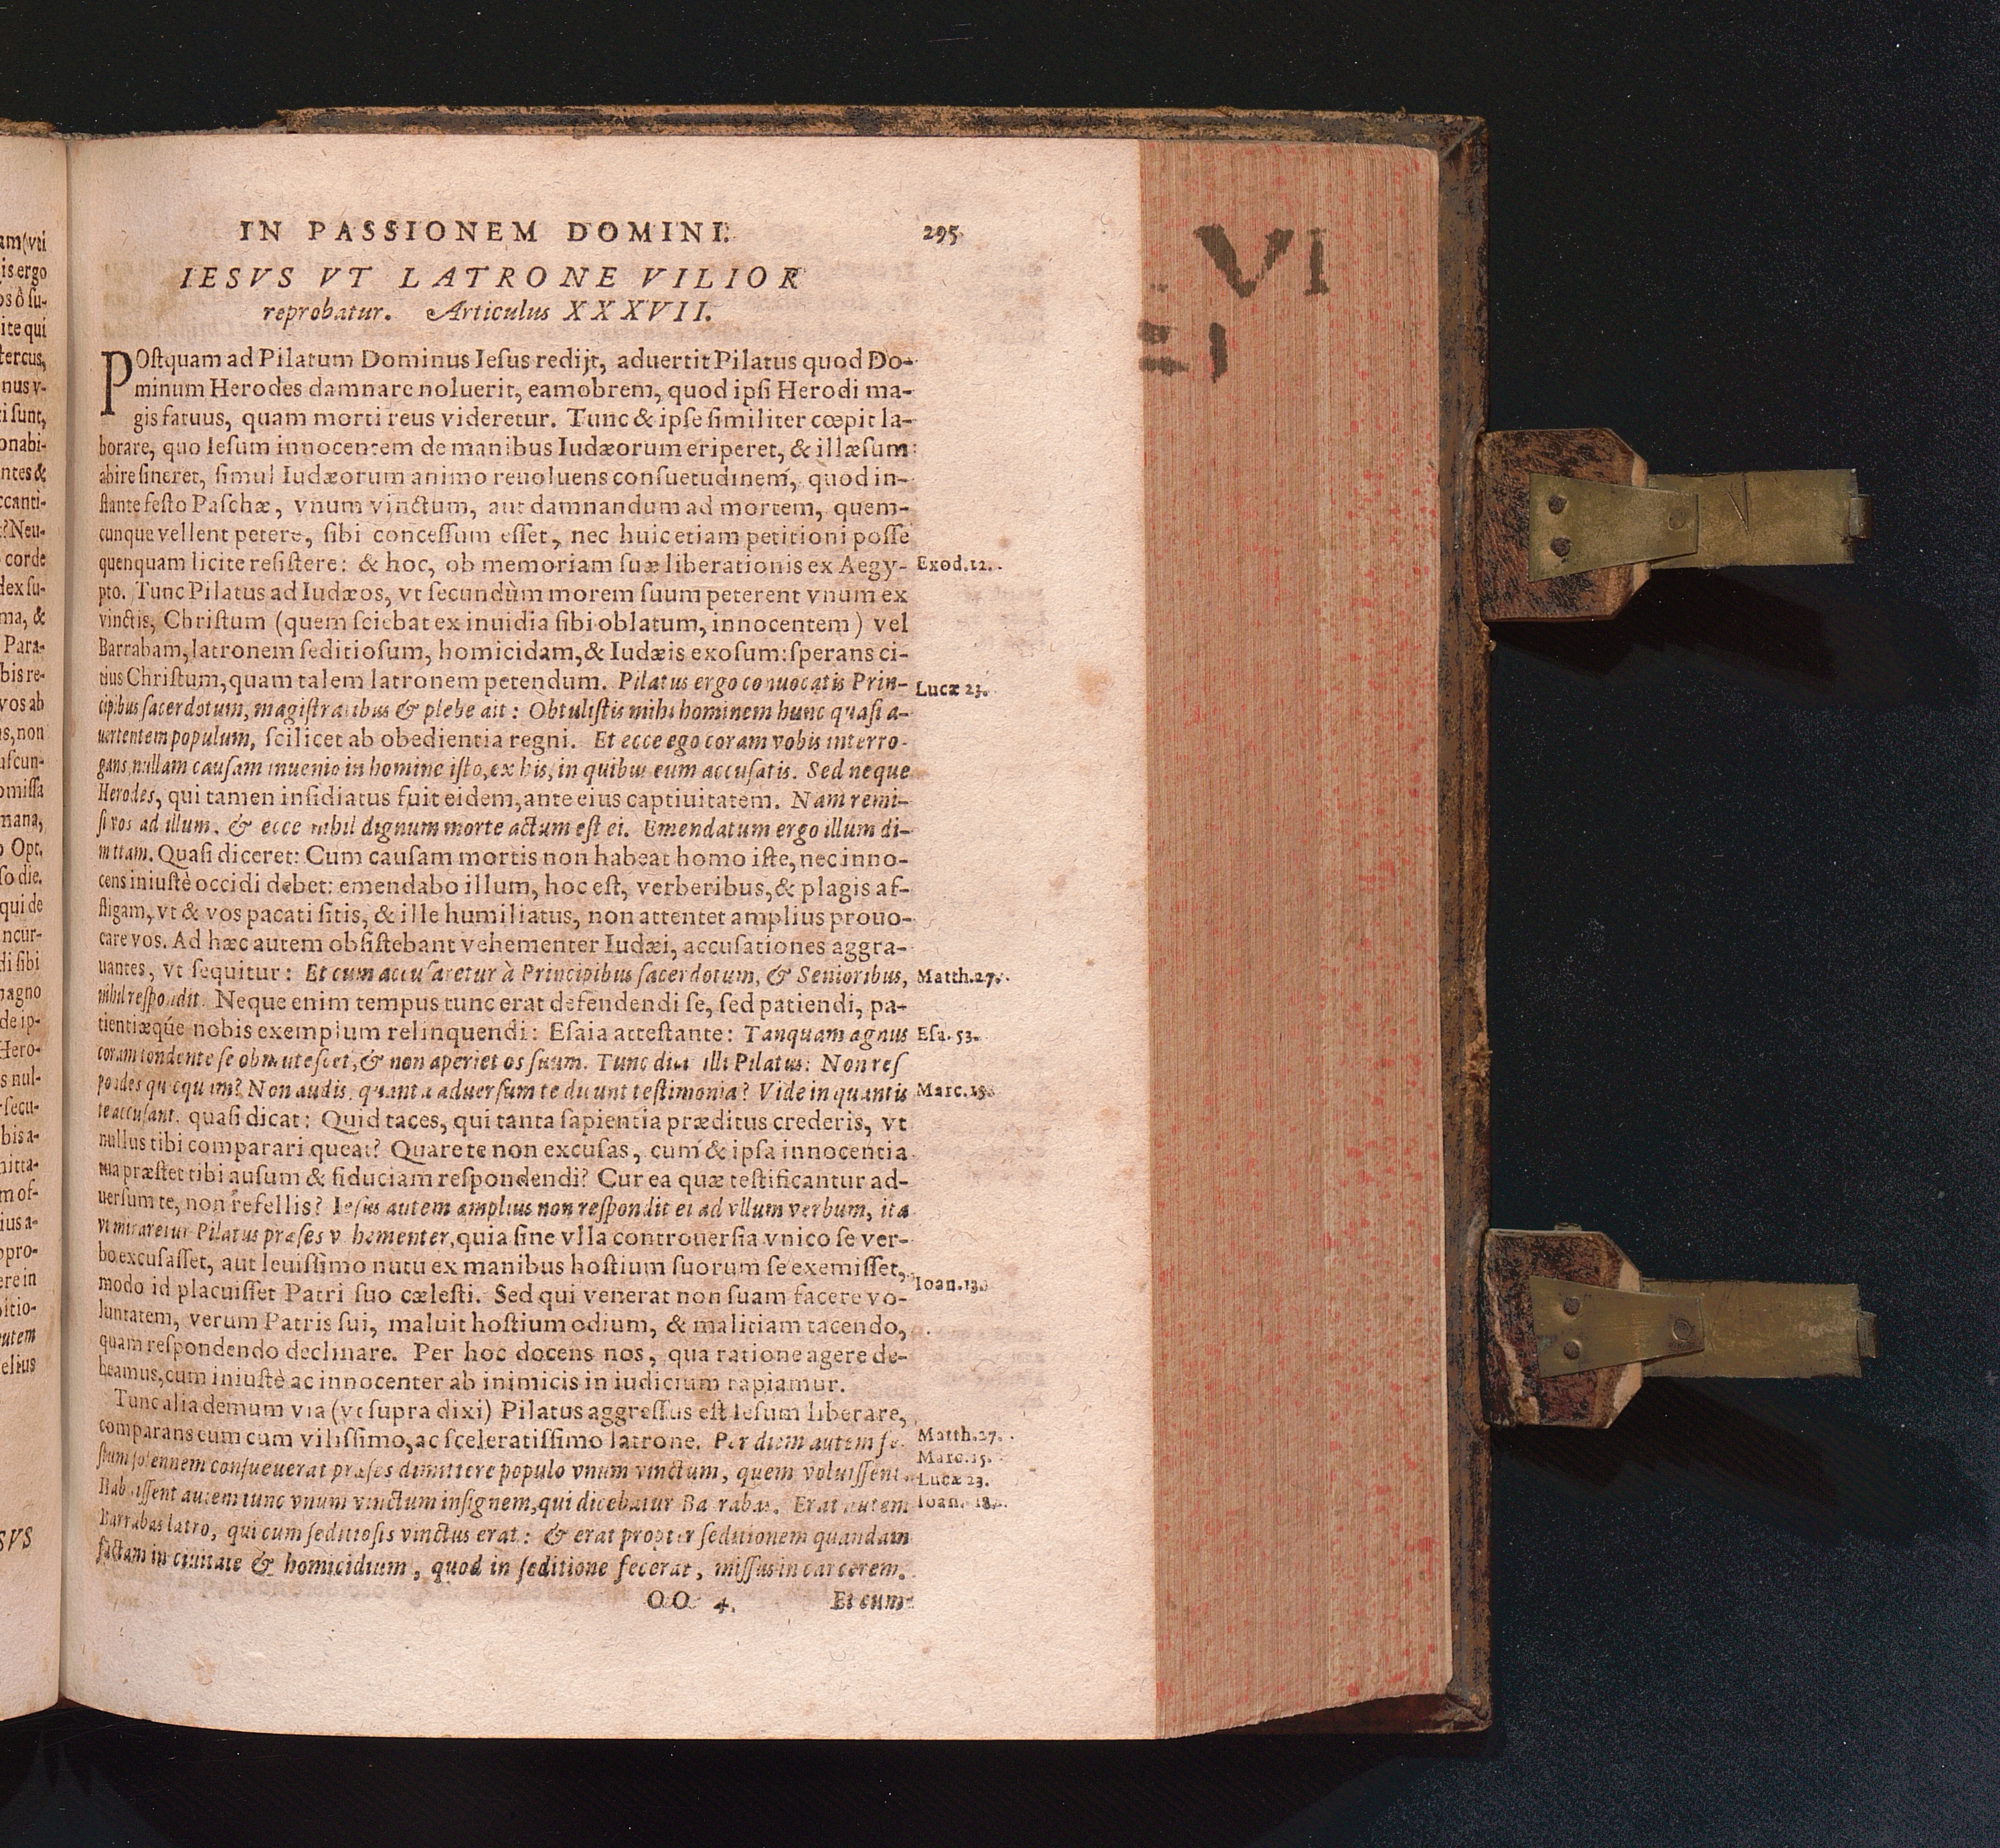 IN PASSIONEM DOMINI. 295
IESVS VT LATRONE VILIOR
reprobatur. Articulus XXXVII.
POſtquam ad Pilatum Dominus Ieſus redijt, aduertit Pilatus quod Do-
minum Herodes damnare noluerit, eamobrem, quod ipſi Herodi ma-
gis fatuus, quam morti reus videretur. Tunc & ipſe ſimiliter cœpit la-
borare, quo Ieſum innocentem de manibus Iudæorum eriperet, & illæſum
abire ſineret, ſimul Iudæorum animo reuoluens conſuetudinem, quod in-
ſtante feſto Paſchæ, vnum vinctum, aut damnandum ad mortem, quem-
cunque vellent petere, ſibi conceſſum eſſet, nec huic etiam petitioni poſſe
quenquam licite reſiſtere: & hoc, ob memoriam ſuæ liberationis ex Aegy- Exod.12.
pto. Tunc Pilatus ad Iudæos, vt ſecundùm morem ſuum peterent vnum ex
vinctis, Chriſtum (quem ſciebat ex inuidia ſibi oblatum, innocentem) vel
Barrabam, latronem ſeditioſum, homicidam, & Iudæis exoſum: ſperans ci-
tius Chriſtum, quam talem latronem petendum. Pilatus ergo conuocatis Prin- Lucæ 23.
cipibus ſacerdotum, magiſtratibus & plebe ait: Obtuliſtis mihi hominem hunc quaſi a-
uertentem populum, ſcilicet ab obedientia regni. Et ecce ego coram vobis interro-
gans, nullam cauſam inuenio in homine iſto, ex his, in quibus eum accuſatis. Sed neque
Herodes, qui tamen inſidiatus fuit eidem, ante eius captiuitatem. Nam remi-
ſi vos ad illum, & ecce nihil dignum morte actum eſt ei. Emendatum ergo illum di-
mittam. Quaſi diceret: Cum cauſam mortis non habeat homo iſte, nec inno-
cens iniuſtè occidi debet: emendabo illum, hoc eſt, verberibus, & plagis af-
fligam, vt & vos pacati ſitis, & ille humiliatus, non attentet amplius prouo-
care vos. Ad hæc autem obſiſtebant vehementer Iudæi, accuſationes aggra-
uantes, vt ſequitur: Et cum accuſaretur à Principibus ſacerdotum, & Senioribus, Matth.27.
nihil reſpondit. Neque enim tempus tunc erat defendendi ſe, ſed patiendi, pa-
tientiæqúe nobis exemplum relinquendi: Eſaia atteſtante: Tanquam agnus Eſa. 53.
coram tondente ſe obmuteſcet, & non aperiet os ſuum. Tunc dicit illi Pilatus: Non reſ
pondes quicquam? Non audis, quanta aduerſum te dicunt teſtimonia? Vide in quantis Marc.15.
te accuſant. quaſi dicat: Quid taces, qui tanta ſapientia præditus crederis, vt
nullus tibi comparari queat? Quare te non excuſas, cum & ipſa innocentia
tua præſtet tibi auſum & fiduciam reſpondendi? Cur ea quæ teſtificantur ad-
uerſum te, non refellis? Ieſus autem amplius non reſpondit ei ad vllum verbum, ita
vt miraretur Pilatus præſes vehementer, quia ſine vlla controuerſia vnico ſe ver-
bo excuſaſſet, aut leuiſſimo nutu ex manibus hoſtium ſuorum ſe exemiſſet,
modo id placuiſſet Patri ſuo cæleſti. Sed qui venerat non ſuam facere vo- Ioan.
luntatem, verum Patris ſui, maluit hoſtium odium, & malitiam tacendo,
quam reſpondendo declinare. Per hoc docens nos, qua ratione agere de-
beamus, cum iniuſtè ac innocenter ab inimicis in iudicium rapiamur.
Tunc alia demum via (vt ſupra dixi) Pilatus aggreſſus eſt Ieſum liberare,
comparans eum cum viliſſimo, ac ſceleratiſſimo latrone. Per diem autem fe- Matth.27.
ſtum ſolennem conſueuerat præſes dimittere populo vnum vinctum, quem voluiſſent. Marc.15.
Lucæ 23.
Habuiſſent autem tunc vnum vinctum inſignem, qui dicebatur Barrabas. Erat autem Ioan. 18.
Barrabas latro, qui cum ſeditioſis vinctus erat: & erat propter ſeditionem quandam
factam in ciuitate & homicidium, quod in ſeditione fecerat, miſſus in carcerem.
OO 4. Et cum
VI
am (vti
is ergo
ite qui
ſtercus,
nus v-
ti ſunt,
onabi-
ntes &
ccanti-
? Neu-
corde
dex ſu-
ma, &
Para-
bis re-
vos ab
s, non
uſcun-
omiſſa
mana,
Opt.
ſo die.
qui de
ncur-
di ſibi
magno
de ip-
Hero-
s nul-
rſecu-
bis a-
mitta-
m of-
ius a-
ppro-
ere in
pitio-
autem
elius
SVS